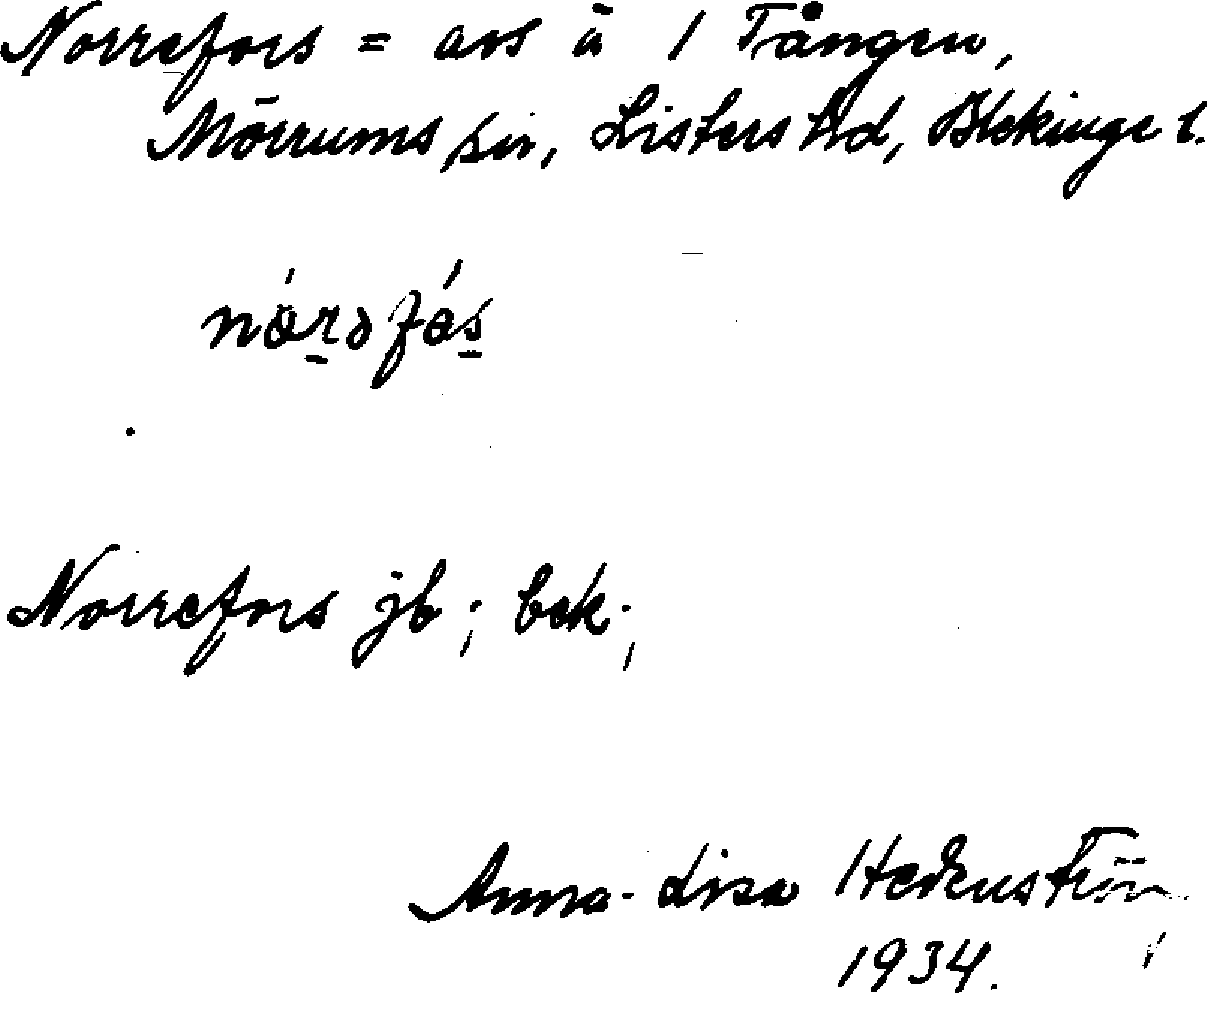 Norrefors = avs å 1 Tången,
Mörrums sn, Listers hd, Blekinge l.
Norrefors jb; bek;
Anna-Lisa Hedenström
1934.